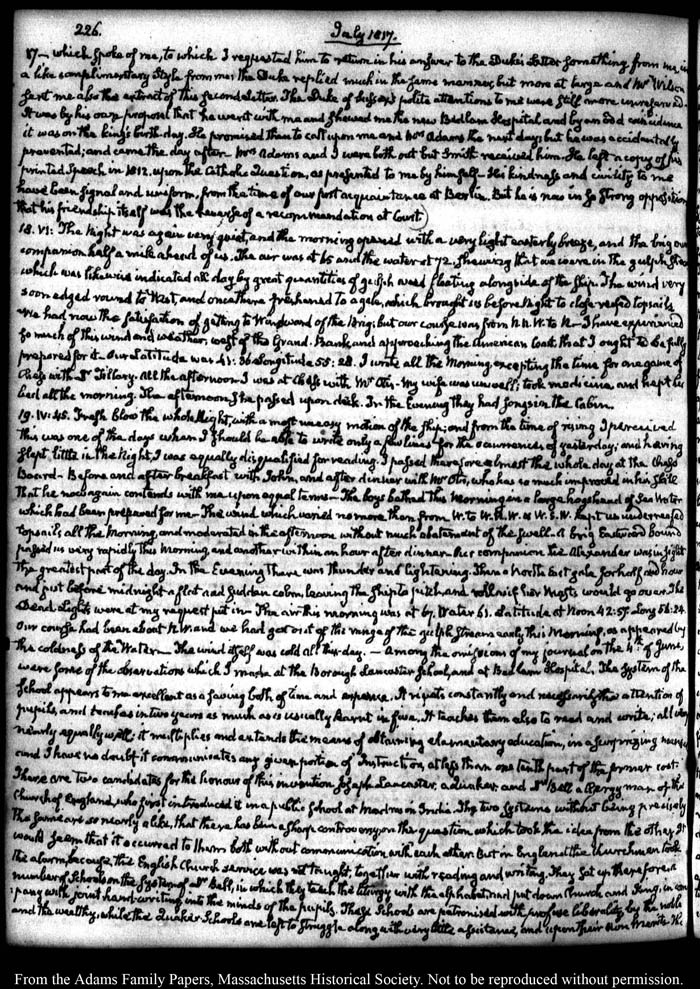 226.
July 1817.
17— which spoke of me, to which I requested him to return in his answer to the Duke's Letter something from me, in
a like complimentary style from me: the Duke replied much in the same manner, but more at large and Mr Wilson
sent me also the extract of this second letter. The Duke of Sussex's polite attentions to me were still more unreserved.
It was by his own proposal that he went with me and shewed me the new Bedlam Hospital and by an odd coincidence
it was on the king's birth-day. He promised then to call upon me and Mrs Adams the next day; but he was accidentally
prevented; and came the day after— Mrs Adams and I were both out but Smith received him. He left a copy of his
printed Speech in 1812, upon the Catholic Question, as presented to me by himself— His kindness and civility to me
have been signal and uniform, from the time of our first acquaintance at Berlin. But he is now in so strong opposition
that his friendship itself was the reverse of a recommendation at Court)
18. VI: The Night was again very quiet, and the morning opened with a very light easterly breeze, and the brig our
companion half a mile ahead of us. The air was at 65 and the water at 72, shewing that we were in the gulph stream
which was likewise indicated all day by great quantities of gulph weed floating alongside of the Ship. The wind very
soon edged round to West, and once there freshened to a gale, which brought us before Night to close-reefed topsails
We had now the satisfaction of getting to Windward of the Brig; but our course was from N.N.W. to N— I have experienced
so much of this wind and weather, west of the Grand-Bank, and approaching the American Coast that I ought to be fully
prepared for it. Our Latitude was 41: 36 Longitude 55: 28. I wrote all the Morning excepting the time for one game of
Chess with Dr Tillary. All the afternoon I was at Chess with Mr Otis. My wife was unwell; took medicine and kept her
bed all the morning. The afternoon, she passed upon deck. In the Evening they had songs in the Cabin.
19. IV:45. Fresh blow the whole Night, with a most uneasy motion of the ship; and from the time of rising I perceived
this was one of the days when I should be able to write only a few lines for the occurrences of yesterday; and having
slept little in the Night, I was equally disqualified for reading. I passed therefore almost the whole day at the Chess
Board— Before and after breakfast with John, and after dinner with Mr Otis, who has so much improved in his skill
that he now again contends with me upon equal terms— The boys bathed this Morning in a large hogshead of Sea Water
which had been prepared for me— The wind which varied no more than from W. to W.N.W. or W.S.W. kept us under reefed
topsails all the Morning, and moderated in the afternoon without much abatement of the swell. A brig Eastward bound
passed us very rapidly this Morning, and another within an hour after dinner. Our companion the Alexander was in sight
the greatest part of the day. In the Evening there was thunder and lightening. Then a North East gale for half an hour
and just before midnight a flat and sudden calm, leaving the Ship to pitch and roll as if her Masts would go over. The
Dead Lights were at my request put in— The air this morning was at 67. Water 61. Latitude at Noon 42:57. Long 56:24.
Our course had been about N.W. and we had got out of the range of the gulph stream early this Morning, as appeared by
the coldness of the Water— The wind itself was cold all this day. — Among the omissions of my journal on the 4th of June,
were some of the observations which I made at the Borough Lancaster School, and at Bedlam Hospital. The system of the
School appears to me excellent as a saving both of time and expence. It rivets constantly and necessarily the attention of
pupils and teaches in two years as much as is usually learnt in four. It teaches them also to read and write, all very
nearly equally well; it multiplies and extends the means of obtaining elementary education, in a surprizing manner
and I have no doubt it communicates any given portion of Instruction, at less than one tenth part of the former cost.
There are two candidates for the honour of this invention Joseph Lancaster, a quaker, and Dr Bell a Clergyman of the
Church of England, who first introduced it in a public School at Madras in India. The two systems without being precisely
the same are so nearly alike, that there has been a sharp controversy on the question which took the idea from the other. It
would seem that it occurred to them both without communication with each other. But in England the Churchmen took
the alarm, because, the English Church service was not taught, together with reading and writing. They set up therefore a
number of Schools on the System of Dr Bell, in which they teach the liturgy with the alphabet, and put down Church and King, in com-
pany with joint hand-writing into the minds of the pupils. These Schools are patronised with profuse liberality by the noble
and the wealthy, while the Quaker Schools are left to struggle along with very little assistance, and upon their own merits. The
From the Adams Family Papers, Massachusetts Historical Society. Not to be reproduced without permission.